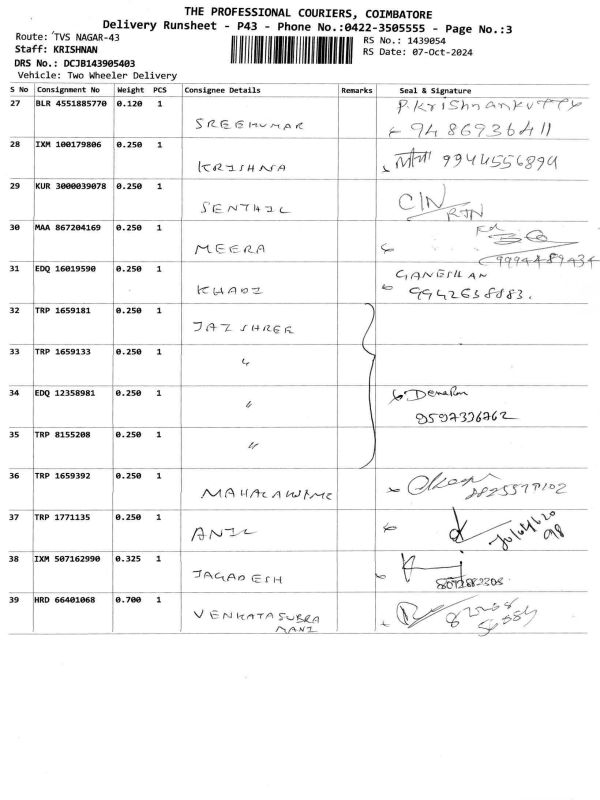 THE PROFESSIONAL COURIERS, COIMBATORE
Delivery Runsheet - P43 - Phone No.:0422-3505555 - Page No.:3
Route: TVS NAGAR-43
RS No.: 1439054
Staff: KRISHNAN
RS Date: 07-Oct-2024
DRS No.: DCJB143905403
Vehicle: Two Wheeler Delivery
S No Consignment No Weight PCS Consignee Details Remarks Seal & Signature
27 BLR 4551885770 0.120 1 P.Krishnankutty
SREEKUMAR 9486936411
28 IXM 100179806 0.250 1
KRISHNA 9944556894
29 KUR 3000039078 0.250 1
SENTHIL CIN/RJN
30 MAA 867204169 0.250 1
MEERA 9994489434
31 EDQ 16019590 0.250 1 GANESHAN
KHADI 9942638883.
32 TRP 1659181 0.250 1
JAISHREE
33 TRP 1659133 0.250 1
"
34 EDQ 12358981 0.250 1
" 9597326762
35 TRP 8155208 0.250 1
"
36 TRP 1659392 0.250 1
37 TRP 1771135 0.250 1
ANIL
38 IXM 507162990 0.325 1
JAGADESH
39 HRD 66401068 0.700 1
VENKATASUBRA
MANI